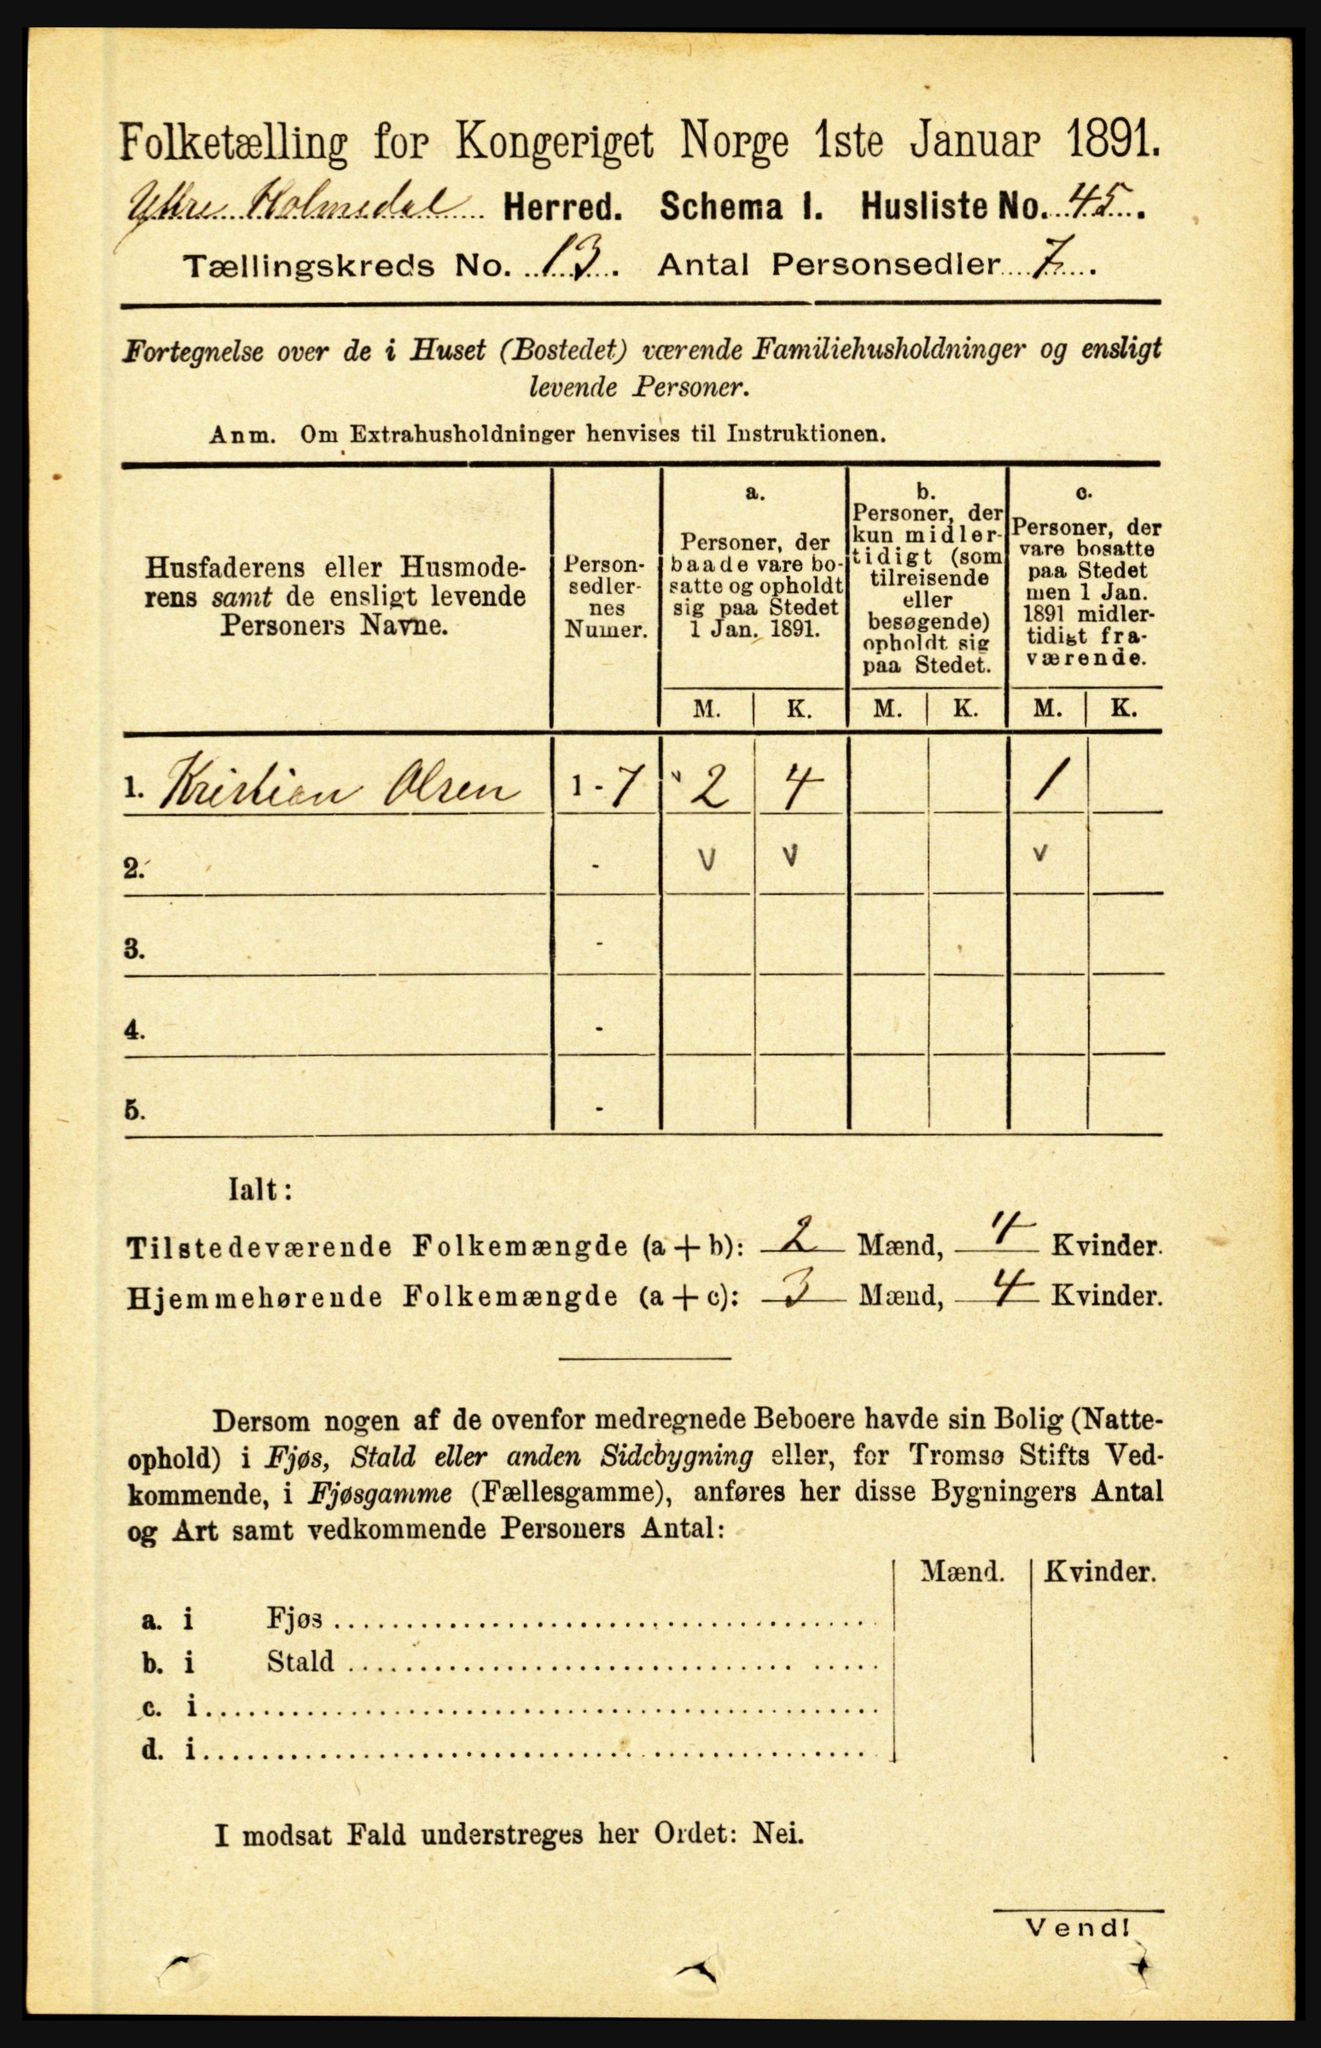 Folketælling for Kongeriget Norge 1ste Januar 1891.
Yttre Holmedal Herred. Schema I. Husliste No. 45.
Tællingskreds No. 13. Antal Personsedler 7.
Fortegnelse over de i Huset (Bostedet) værende Familiehusholdninger og ensligt
levende Personer.
Anm. Om Extrahusholdninger henvises til Instruktionen.
Husfaderens eller Husmode-
rens samt de ensligt levende
Personers Navne.
Person-
sedler-
nes
Numer.
a.
Personer, der
baade vare bo-
satte og opholdt
sig paa Stedet
1 Jan. 1891.
b.
Personer, der
kun midler-
tidigt (som
tilreisende
eller
besøgende)
opholdt sig
paa Stedet.
c.
Personer, der
vare bosatte
paa Stedet
men 1 Jan.
1891 midler-
tidigt fra-
værende.
M. K. M. K. M. K.
1. Kristian Olsen 1 - 7 2 4 1
2. - v v v
3. -
4. -
5. -
Ialt:
Tilstedeværende Folkemængde (a + b): 2 Mænd, 4 Kvinder.
Hjemmehørende Folkemængde (a + c): 3 Mænd, 4 Kvinder.
Dersom nogen af de ovenfor medregnede Beboere havde sin Bolig (Natte-
ophold) i Fjøs, Stald eller anden Sidebygning eller, for Tromsø Stifts Ved-
kommende, i Fjøsgamme (Fællesgamme), anføres her disse Bygningers Antal
og Art samt vedkommende Personers Antal:
Mænd. Kvinder.
a. i Fjøs
b. i Stald
c. i
d. i
I modsat Fald understreges her Ordet: Nei.
Vend!